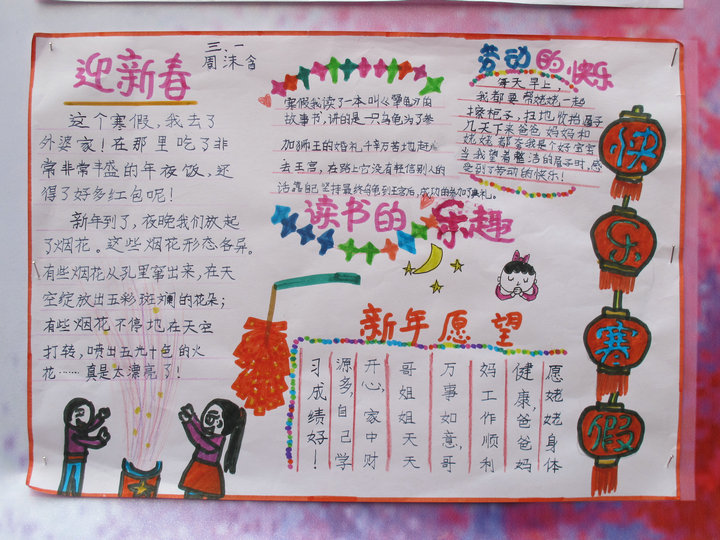 迎新春
三.一
周沫含
这个寒假,我去了
外婆家!在那里吃了非
常非常丰盛的年夜饭,还
得了好多红包呢!
新年到了,夜晚我们放起
了烟花。这些烟花形态各异。
有些烟花从孔里窜出来,在天
空绽放出五彩斑斓的花朵;
有些烟花不停地在天空
打转,喷出五光十色的火
花……真是太漂亮了!
寒假我读了一本叫《犟龟》的
故事书,讲的是一只乌龟为了参
加狮王的婚礼千辛万苦地赶
去王宫,在路上它没有轻信别人的
话靠自己坚持最终乌龟到王宫后,成功的参加了典礼。
读书的乐趣
劳动的快乐
每天早上,
我都要帮姥姥一起
擦柜子,扫地收拾屋子
几天下来爸爸妈妈和
姥姥都夸我是个好宝宝
当我望着整洁的屋子时,感
受到了劳动的快乐!
快乐寒假
新年愿望
愿姥姥身体
健康,爸爸妈
妈工作顺利
万事如意,哥
哥姐姐天天
开心,家中财
源多,自己学
习成绩好!